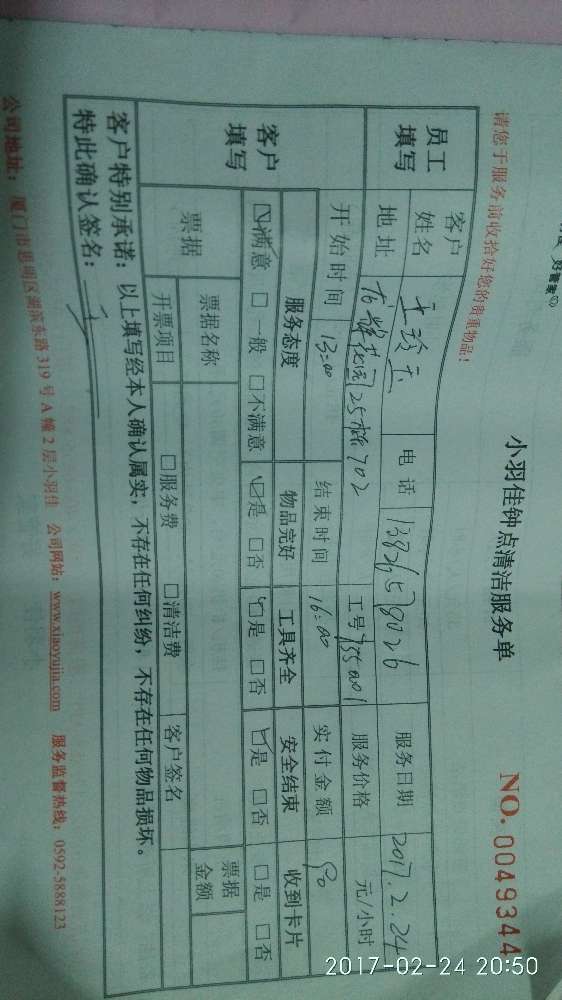 好管家
小羽佳钟点清洁服务单 NO. 0049344
请您于服务前收拾好您的贵重物品!
员工填写 客户姓名 电话 服务日期 2017.2.24
地址 25栋702 工号 服务价格 元/小时
开始时间 13:00 结束时间 16:00 实付金额 90
客户填写 服务态度 物品完好 工具齐全 安全结束 收到卡片
☑满意 □一般 □不满意 ☑是 □否 ☑是 □否 ☑是 □否 □是 □否
票据 票据名称 票据金额
开票项目 □服务费 □清洁费 客户签名
客户特别承诺:以上填写经本人确认属实,不存在任何纠纷,不存在任何物品损坏。
特此确认签名:
公司地址:厦门市思明区湖滨东路319号A幢2层小羽佳 公司网站:www.xiaoyujia.com 服务监督热线:0592-5888123
2017-02-24 20:50